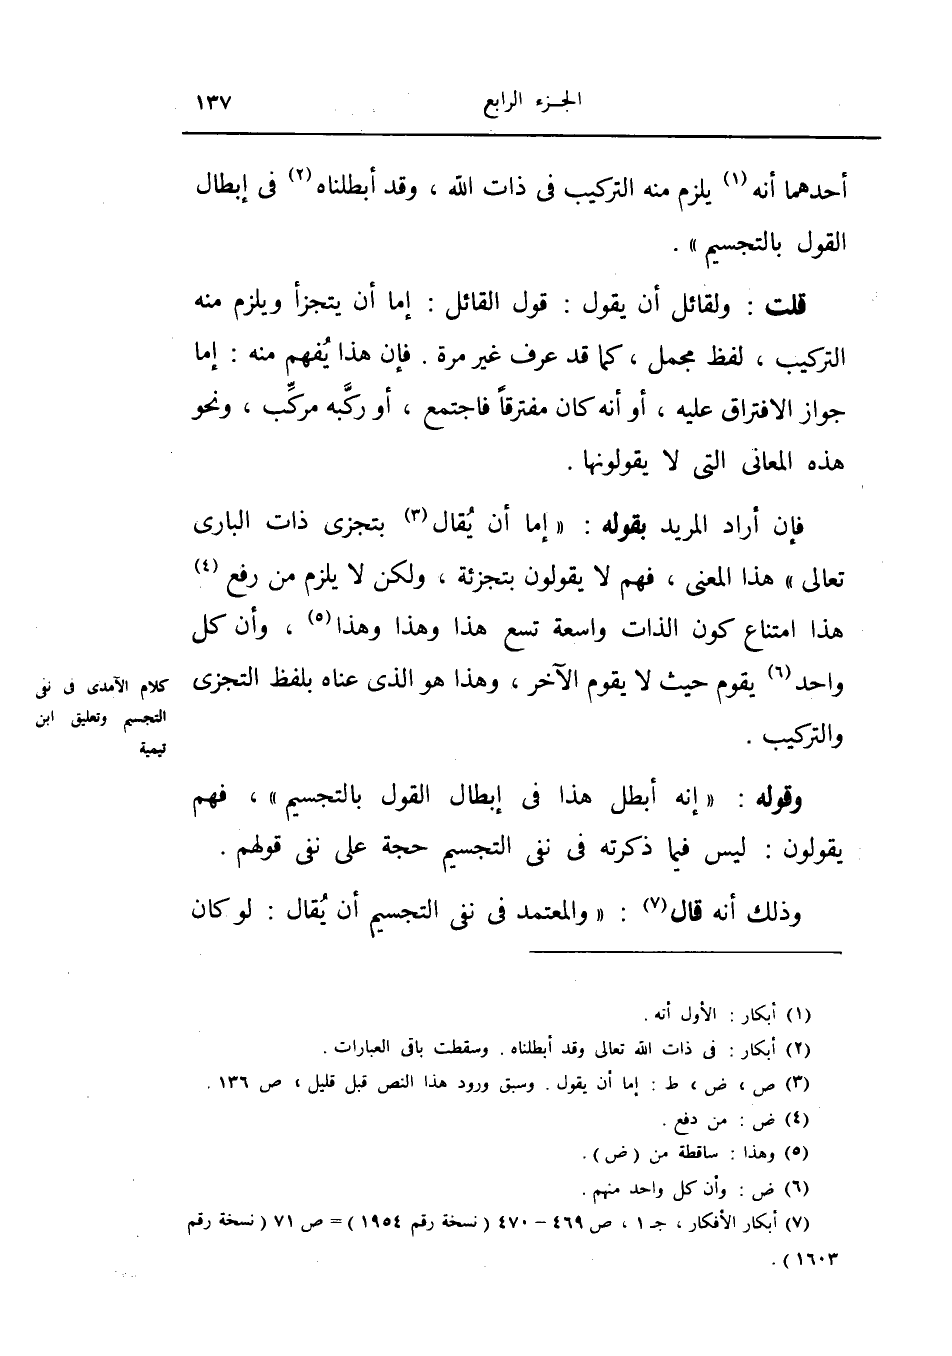 الجزء الرابع ١٣٧
أحدهما أنه (١) يلزم منه التركيب فى ذات الله ، وقد أبطلناه (٢) فى إبطال
القول بالتجسيم » .
قلت : ولقائل أن يقول : قول القائل : إما أن يتجزأ ويلزم منه
التركيب ، لفظ مجمل ، كما قد عرف غير مرة . فإن هذا يُفهم منه : إما
جواز الافتراق عليه ، أو أنه كان مفترقاً فاجتمع ، أو ركَّبه مركِّب ، ونحو
هذه المعانى التى لا يقولونها .
فإن أراد المريد بقوله : « إما أن يُقال (٣) بتجزى ذات البارى
تعالى » هذا المعنى ، فهم لا يقولون بتجزئة ، ولكن لا يلزم من رفع (٤)
هذا امتناع كون الذات واسعة تسع هذا وهذا وهذا (٥) ، وأن كل
واحد (٦) يقوم حيث لا يقوم الآخر ، وهذا هو الذى عناه بلفظ التجزى
والتركيب .
كلام الآمدى فى نفى
التجسيم وتعليق ابن
تيمية
وقوله : « إنه أبطل هذا فى إبطال القول بالتجسيم » ، فهم
يقولون : ليس فيما ذكرته فى نفى التجسيم حجة على نفى قولهم .
وذلك أنه قال (٧) : « والمعتمد فى نفى التجسيم أن يُقال : لو كان
(١) أبكار : الأول أنه .
(٢) أبكار : فى ذات الله تعالى وقد أبطلناه . وسقطت باقى العبارات .
(٣) ص ، ض ، ط : إما أن يقول . وسبق ورود هذا النص قبل قليل ، ص ١٣٦ .
(٤) ض : من دفع .
(٥) وهذا : ساقطة من ( ض ) .
(٦) ض : وأن كل واحد منهم .
(٧) أبكار الأفكار ، جـ ١ ، ص ٤٦٩ – ٤٧٠ ( نسخة رقم ١٩٥٤ ) = ص ٧١ ( نسخة رقم
١٦٠٣ ) .